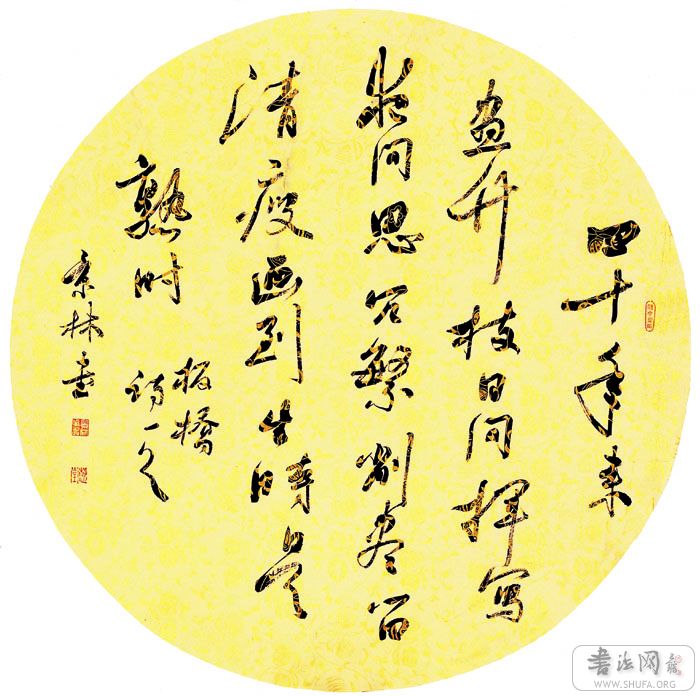 四十年来
画竹枝日间挥写
夜间思冗繁削尽留
清瘦画到生時是
熟时
板橋
诗一首
林书
書法网
WWW.SHUFA.ORG